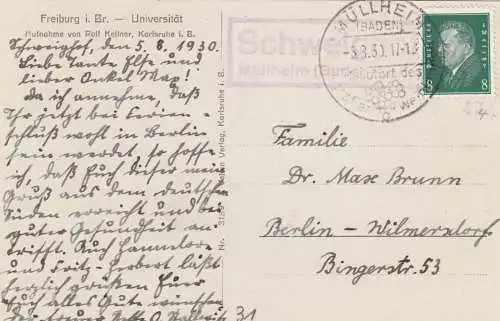 Freiburg i. Br. — Universität
Aufnahme von Rolf Kellner, Karlsruhe i. B.
Schweighof, den 5. 8. 1930.
Liebe Tante Else und
lieber Onkel Max!
Da ich annehme, daß
Ihr jetzt bei Ferien-
schluß wohl in Berlin
sein werdet, so hoffe
ich, daß Euch dieser mein
Gruß aus dem deutschen
Süden erreicht und bei
guter Gesundheit an-
trifft. Auch Hannelore
und Fritz-Herbert läßt
herzlich grüßen Euer
Euch alles Gute wünschen-
der treuer Neffe O.
31
Verlag, Karlsruhe i. B.
Nr.
Schwei
Müllheim (Bad
MÜLLHEIM
(BADEN)
5.8.30. 17-18
8
8
Familie
Dr. Max Brunn
Berlin - Wilmersdorf
Bingerstr. 53